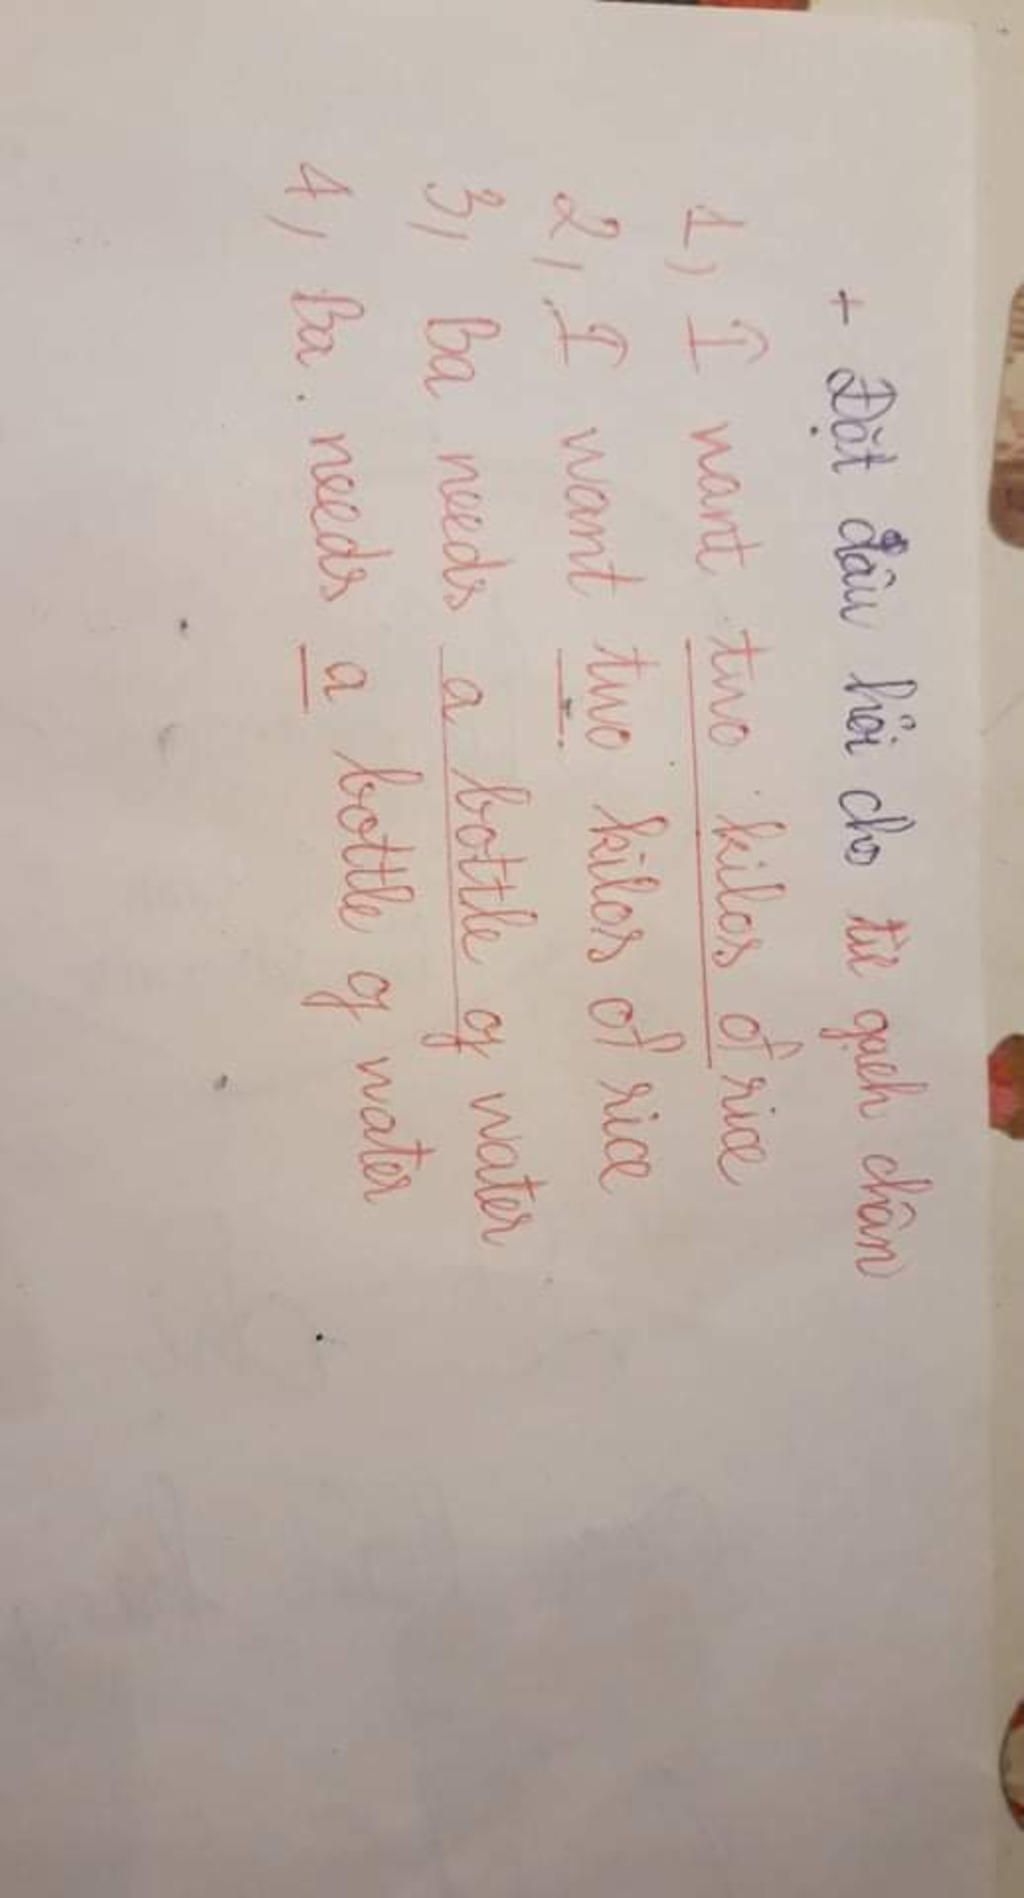 + Đặt dâu hỏi cho từ gạch chân
1, I want two kilos of rice
2, I want two kilos of rice
3, ba needs a bottle of water
4, Ba needs a bottle of water